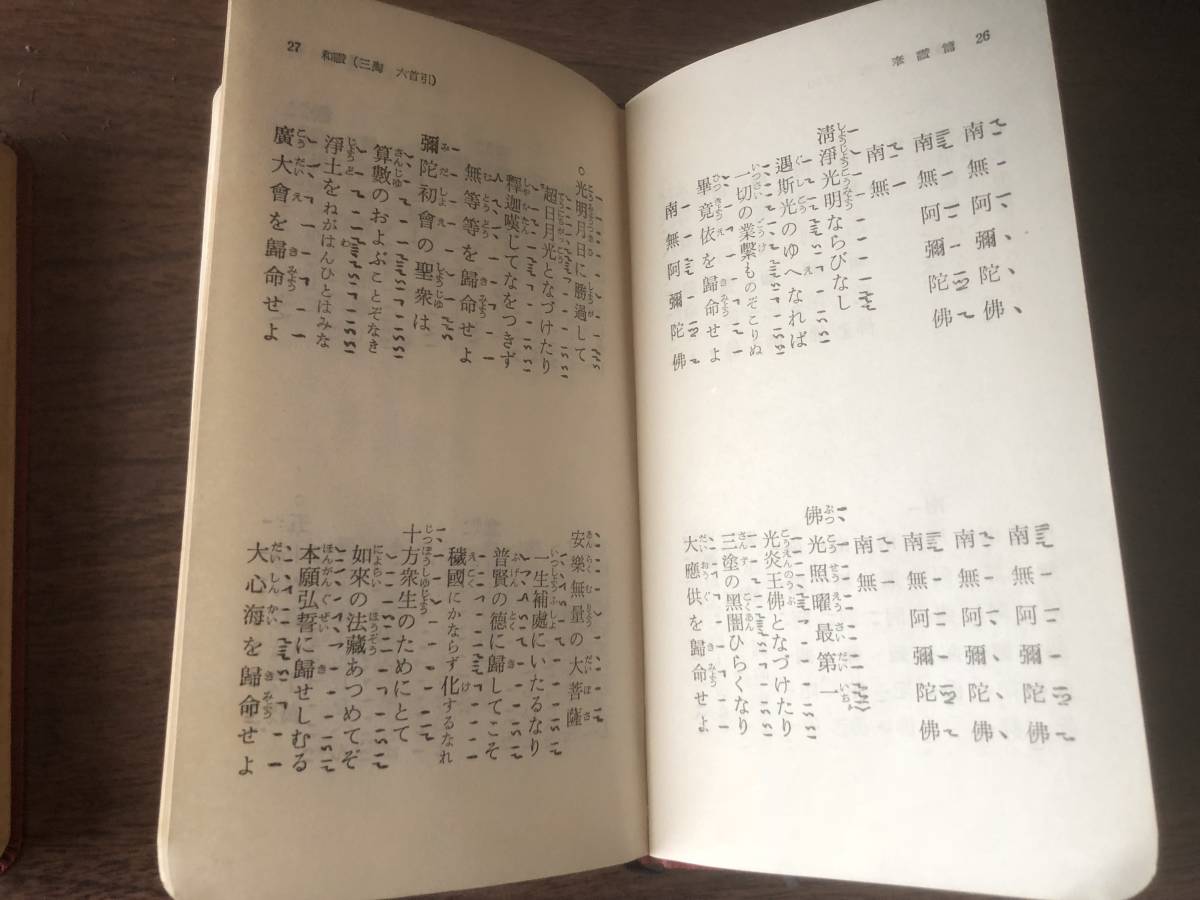 26
南無阿彌陀佛
南無阿彌陀佛
南無
清淨光明ならびなし
遇斯光のゆへなれば
一切の業繫ものぞこりぬ
畢竟依を歸命せよ
南無阿彌陀佛
南無阿彌陀佛
南無阿彌陀佛
南無阿彌陀佛
南無
佛光照曜最第一
光炎王佛となづけたり
三塗の黑闇ひらくなり
大應供を歸命せよ
27 和讃（三淘 六首引）
○光明月日に勝過して
超日月光となづけたり
釋迦嘆じてなをつきず
無等等を歸命せよ
彌陀初會の聖衆は
算數のおよぶことぞなき
淨土をねがはんひとはみな
廣大會を歸命せよ
安樂無量の大菩薩
一生補處にいたるなり
普賢の德に歸してこそ
穢國にかならず化するなれ
十方衆生のためにとて
如來の法藏あつめてぞ
本願弘誓に歸せしむる
大心海を歸命せよ